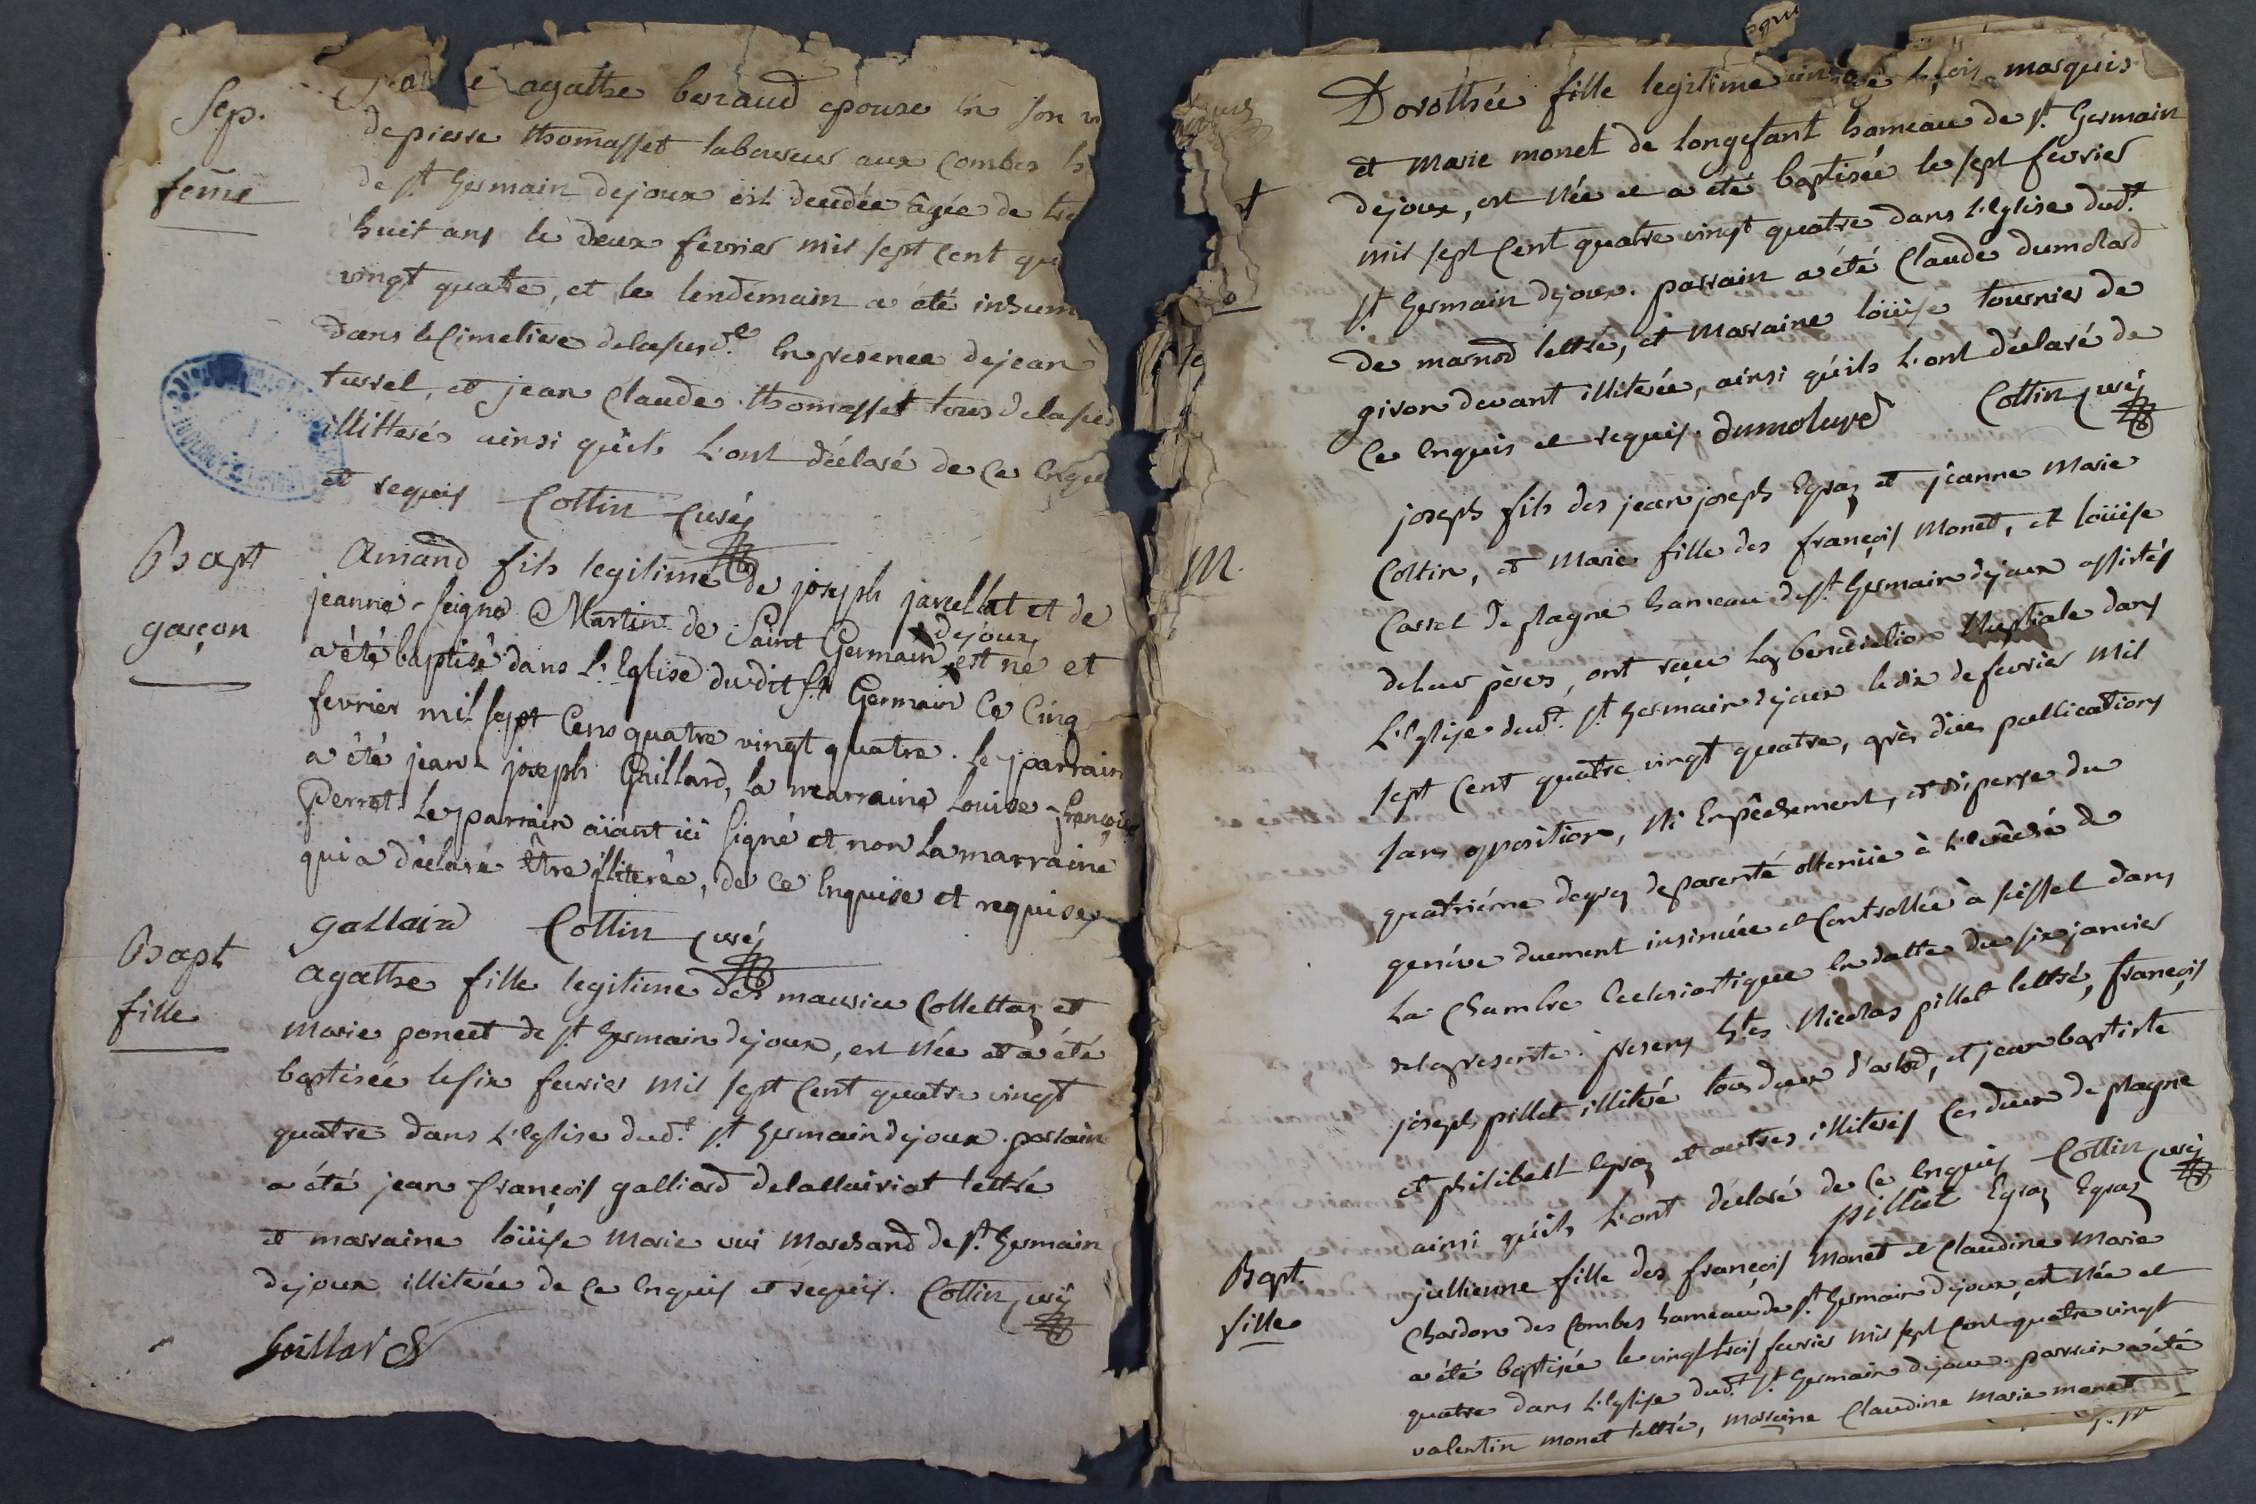 Sep.
feme
agathe beraud epouse en son
de pierre thomasset laboureur aux Combes
de st Germain dejoux est decedée âgée de
huit ans le deux fevrier mil sept Cent
vingt quatre, et le lendemain a été inhum
dans le Cimetiere delasusd.e En presence de jean
turrel, et jean Claude thomasset tous delasus
illitterés ainsi qu'ils L'ont déclaré de Ce Enqu
et requis Cottin Curé
Bapt
garçon
Amand fils legitime de joseph jarcellat et de
jeanne-Seigne Martin de Saint Germain dejoux est né et
a été baptisé dans L'Eglise dudit St Germain Ce Cinq
fevrier mil sept Cens quatre vingt quatre. le parrain
a été jean-joseph Gaillard, la marraine Louise-françoise
Perret. Le parrain aïant ici signé et non La marraine
qui a déclaré être illiterée, de Ce Enquise et requise
gallaird Cottin Curé
Bapt
fille
agathe fille legitime des maurice Collettaz et
Marie poncet de st Germain dejoux, est Née et a été
baptisée le six fevrier Mil sept Cent quatre vingt
quatre dans L'Eglise dud.t st Germain dejoux. parrain
a été jean françois galliard lettré
et marraine loüise Marie Marchand de st Germain
dejoux illiterée de Ce Enquis et requis. Cottin Curé
Gaillard
Dorothée fille legitime marquis
et Marie monet de longefant hameau de st Germain
dejoux, est Née et a été baptisée le sept fevrier
mil sept Cent quatre vingt quatre dans L'Eglise dud.t
st Germain dejoux. parrain a été Claude dumolard
de marnod lettré, et Marraine loüise tournier de
giron devant illiterée, ainsi qu'ils L'ont déclaré de
Ce Enquis et requis. dumolard Cottin Curé
M.
joseph fils des jean joseph Egraz et jeanne Marie
Cottin, et Marie fille des françois Monet, et loüise
Carret de plagne hameau de st Germain dejoux assistés
de leur peres, ont reçu La benediction Nuptiale dans
L'Eglise dud.t st Germain dejoux le dix de fevrier Mil
sept Cent quatre vingt quatre, après düe publications
sans opposition, Ni Empêchement, et dispense du
quatriéme degrez de parenté obtenüe à L'Evêché de
genéve duement insinuée et Controllée à seissel dans
La Chambre Ecclesiastique En datte du six janvier
delapresente. presens h.tes Nicolas pillet lettré, françois
joseph pillet illitéré tous deux d'arlod, et jean baptiste
et philibert Egraz et autres illiterés Ces deux de plagne
ainsi qu'ils L'ont déclaré de Ce Enquis Cottin Curé
pilliet Egraz Egraz
Bapt.
fille
jullienne fille des françois Monet et Claudine Marie
Chardon des Combes hameau de st Germain dejoux, est Née et
a été baptisée le vingt trois fevrier Mil sept Cent quatre vingt
quatre dans L'Eglise dud.t st Germain dejoux. parrain a été
valentin monet lettré, marraine Claudine Marie monet